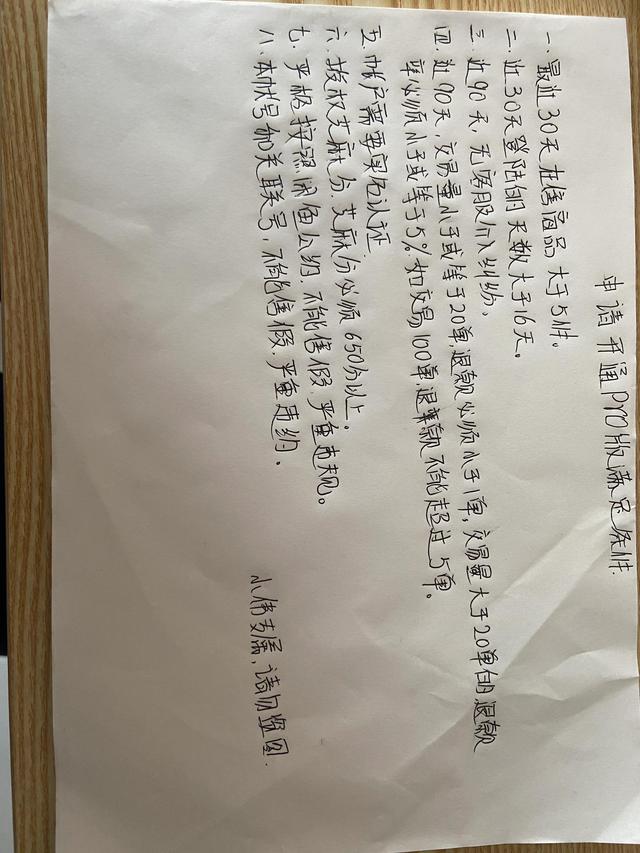 申请开通Pro版满足条件.
一、最近30天在售商品大于5件。
二、近30天登陆的天数大于16天。
三、近90天,无客服介入纠纷、
四、近90天,交易量小于或等于20单,退款必须小于1单,交易量大于20单的退款
率必须小于或等于5%.如交易100单,退款不能超过5单。
五、帐户需要实名认证
六、授权芝麻分、芝麻分必须650分以上。
七、严格按照闲鱼公约、不能售假、严重违规。
八、本帐号和关联号,不能售假、严重违约、
小伟专属,请勿盗图.